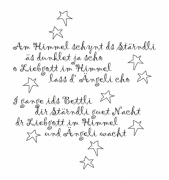 Am Himmel schynt ds Stärndli
äs dunklet ja scho
o Liebgott im Himmel
lass d' Ängeli cho
I gange ids Bettli
dir Stärndli guet Nacht
dr Liebgott im Himmel
und Ängeli wacht